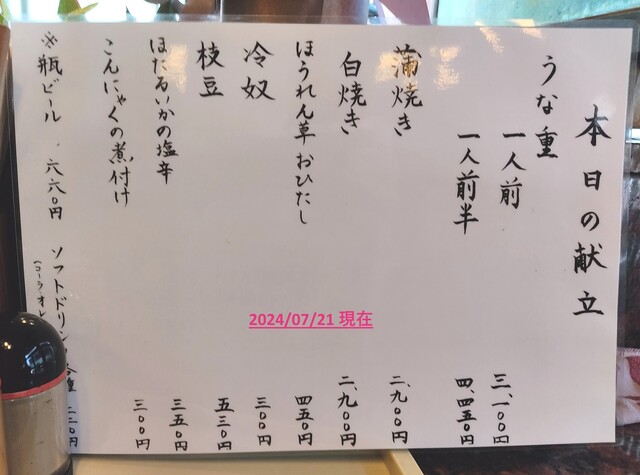 本日の献立
うな重
一人前 三、一〇〇円
一人前半 四、四五〇円
蒲焼き 二、九〇〇円
白焼き 二、九〇〇円
ほうれん草おひたし 四五〇円
冷奴 三〇〇円
枝豆 五三〇円
ほたるいかの塩辛 三五〇円
こんにゃくの煮付け 三〇〇円
※瓶ビール 六六〇円 ソフトドリン 二二〇円
(コーラ
2024/07/21 現在